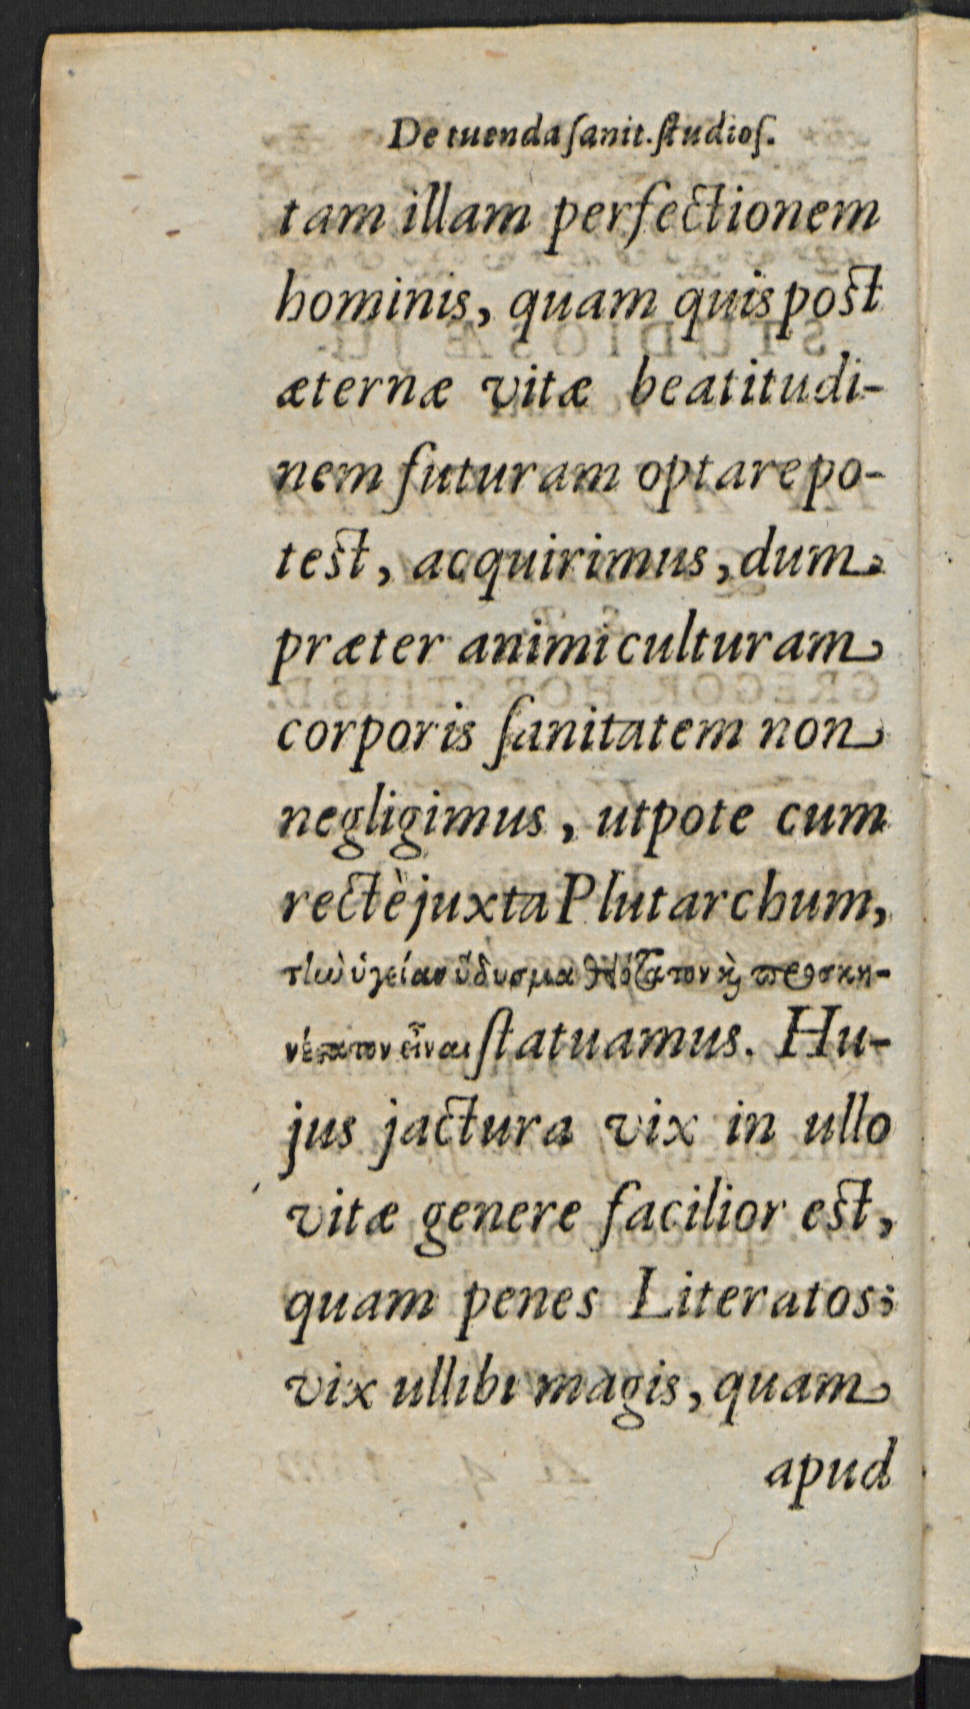 De tuenda ſanit. ſtudioſ.
tam illam perfectionem
hominis, quam quis post
æternæ vitæ beatitudi-
nem futuram optare po-
test, acquirimus, dum
præter animi culturam
corporis ſanitatem non
negligimus, utpote cum
rectè juxta Plutarchum,
τὴν ὑγείαν ἥδυσμα θειότατον καὶ προσκη-
νέστατον εἶναι ſtatuamus. Hu-
jus jactura vix in ullo
vitæ genere facilior est,
quam penes Literatos;
vix ullibi magis, quam
apud